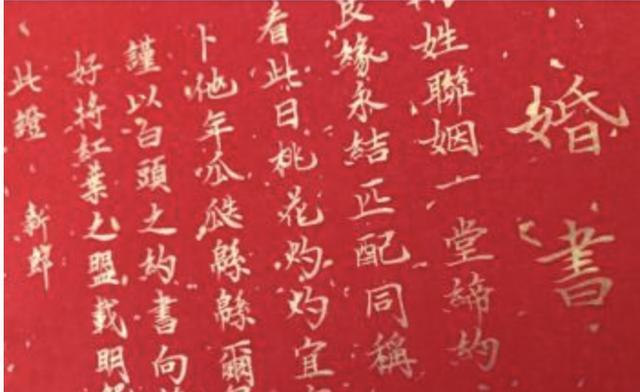 婚書
姓聯姻一堂締約
良緣永結匹配同稱
看此日桃花灼灼宜
卜他年瓜瓞緜緜爾
謹以白頭之約書向
好將紅葉之盟載明
此證 新郎